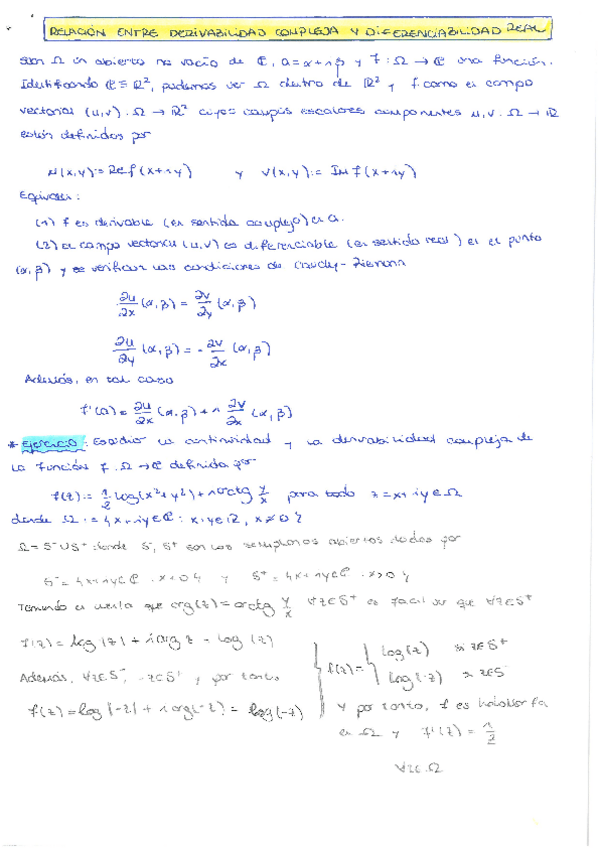 RELACIÓN ENTRE DERIVABILIDAD COMPLEJA Y DIFERENCIABILIDAD REAL
Sean Ω un abierto no vacío de ℂ, a=α+iβ y f:Ω→ℂ una función.
Identificando ℂ≡ℝ², podemos ver Ω dentro de ℝ² y f como el campo
vectorial (u,v):Ω→ℝ² cuyos campos escalares componentes u,v:Ω→ℝ
están definidos por
u(x,y):=Re f(x+iy) y v(x,y):=Im f(x+iy)
Equivalen:
(1) f es derivable (en sentido complejo) en a.
(2) el campo vectorial (u,v) es diferenciable (en sentido real) en el punto
(α,β) y se verifican las condiciones de Cauchy-Riemann
∂u/∂x (α,β) = ∂v/∂y (α,β)
∂u/∂y (α,β) = - ∂v/∂x (α,β)
Además, en tal caso
f'(a) = ∂u/∂x (α,β) + i ∂v/∂x (α,β)
* Ejercicio: Estudiar la continuidad y la derivabilidad compleja de
la función f:Ω→ℂ definida por
f(z):= 1/2 log(x²+y²)+i arctg y/x para todo z=x+iy∈Ω
donde Ω:={x+iy∈ℂ: x,y∈ℝ, x≠0}
Ω=S⁻∪S⁺ donde S⁻, S⁺ son los semiplanos abiertos dados por
S⁻={x+iy∈ℂ: x<0} y S⁺={x+iy∈ℂ: x>0}
Teniendo en cuenta que arg(z)=arctg y/x ∀z∈S⁺ es fácil ver que ∀z∈S⁺
f(z)=log|z|+i arg z = log(z)
Además, ∀z∈S⁻, -z∈S⁺ y por tanto
f(z)=log|-z|+i arg(-z)=log(-z)
f(z)= { log(z) si z∈S⁺
log(-z) si z∈S⁻
y por tanto, f es holomorfa
en Ω y f'(z)=1/z
∀z∈Ω